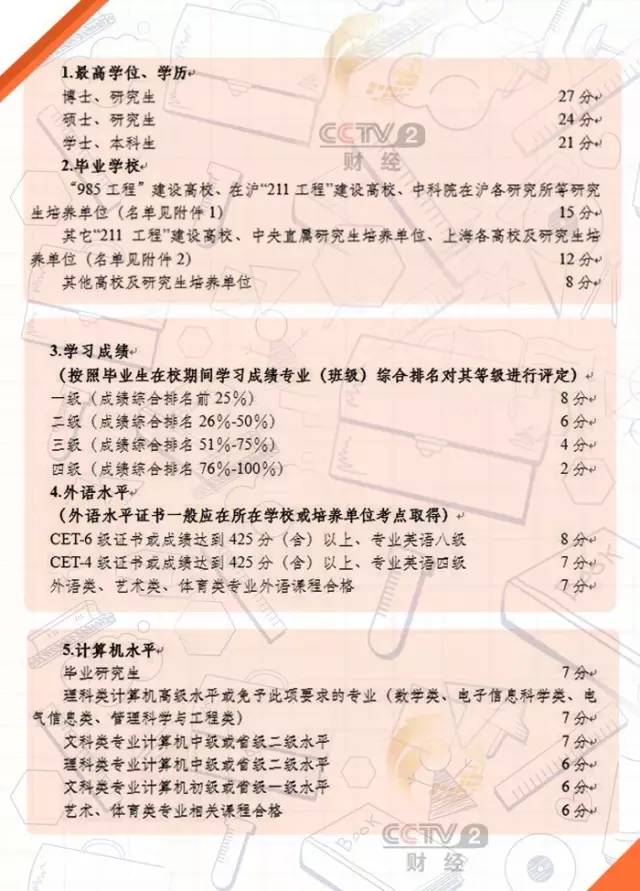 1.最高学位、学历
博士、研究生 27 分
硕士、研究生 24 分
学士、本科生 21 分
2.毕业学校
“985 工程”建设高校、在沪“211 工程”建设高校、中科院在沪各研究所等研究
生培养单位（名单见附件 1） 15 分
其它“211 工程”建设高校、中央直属研究生培养单位、上海各高校及研究生培
养单位（名单见附件 2） 12 分
其他高校及研究生培养单位 8 分
3.学习成绩
（按照毕业生在校期间学习成绩专业（班级）综合排名对其等级进行评定）
一级（成绩综合排名前 25％） 8 分
二级（成绩综合排名 26％-50％） 6 分
三级（成绩综合排名 51％-75％） 4 分
四级（成绩综合排名 76％-100％） 2 分
4.外语水平
（外语水平证书一般应在所在学校或培养单位考点取得）
CET-6 级证书或成绩达到 425 分（含）以上、专业英语八级 8 分
CET-4 级证书或成绩达到 425 分（含）以上、专业英语四级 7 分
外语类、艺术类、体育类专业外语课程合格 7 分
5.计算机水平
毕业研究生 7 分
理科类计算机高级水平或免于此项要求的专业（数学类、电子信息科学类、电
气信息类、管理科学与工程类） 7 分
文科类专业计算机中级或省级二级水平 7 分
理科类专业计算机中级或省级二级水平 6 分
文科类专业计算机初级或省级一级水平 6 分
艺术、体育类专业相关课程合格 6 分
CCTV 2
财 经
CCTV 2
财 经
BOOK
BOOK